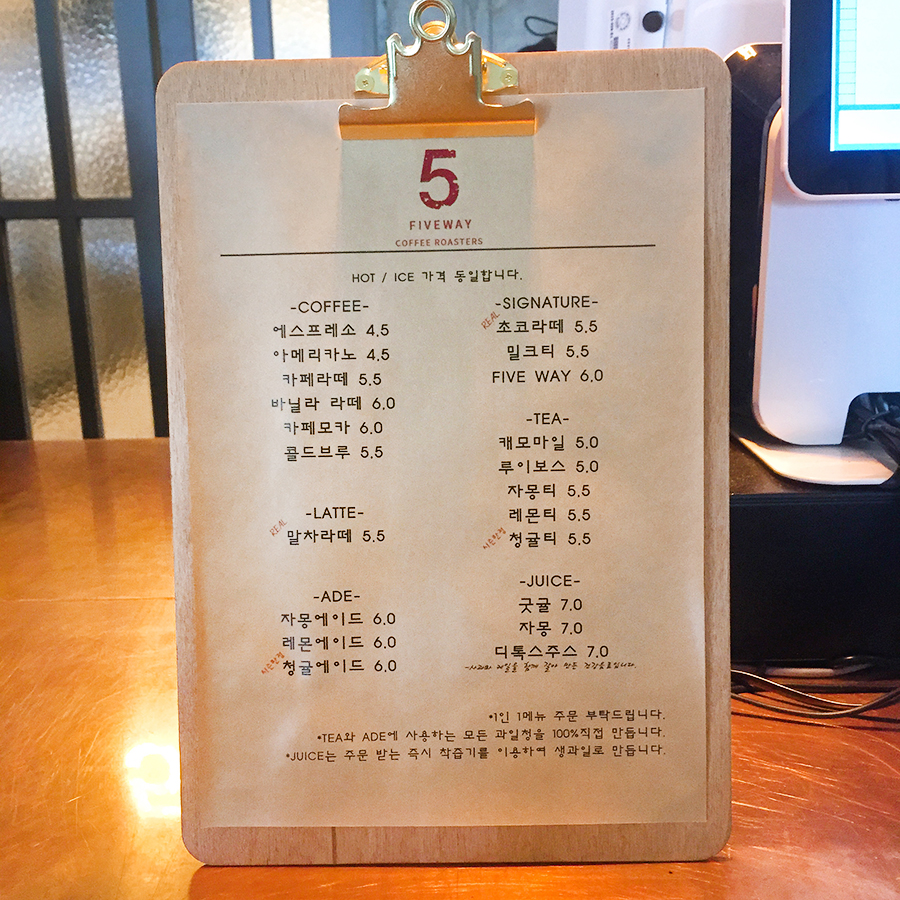 5
FIVEWAY
COFFEE ROASTERS
HOT / ICE 가격 동일합니다.
-COFFEE-
에스프레소 4.5
아메리카노 4.5
카페라떼 5.5
바닐라 라떼 6.0
카페모카 6.0
콜드브루 5.5
-LATTE-
REAL
말차라떼 5.5
-ADE-
자몽에이드 6.0
레몬에이드 6.0
청귤에이드 6.0
-SIGNATURE-
REAL
초코라떼 5.5
밀크티 5.5
FIVE WAY 6.0
-TEA-
캐모마일 5.0
루이보스 5.0
자몽티 5.5
레몬티 5.5
청귤티 5.5
-JUICE-
굿귤 7.0
자몽 7.0
디톡스주스 7.0
•1인 1메뉴 주문 부탁드립니다.
•TEA와 ADE에 사용하는 모든 과일청을 100%직접 만듭니다.
•JUICE는 주문 받는 즉시 착즙기를 이용하여 생과일로 만듭니다.